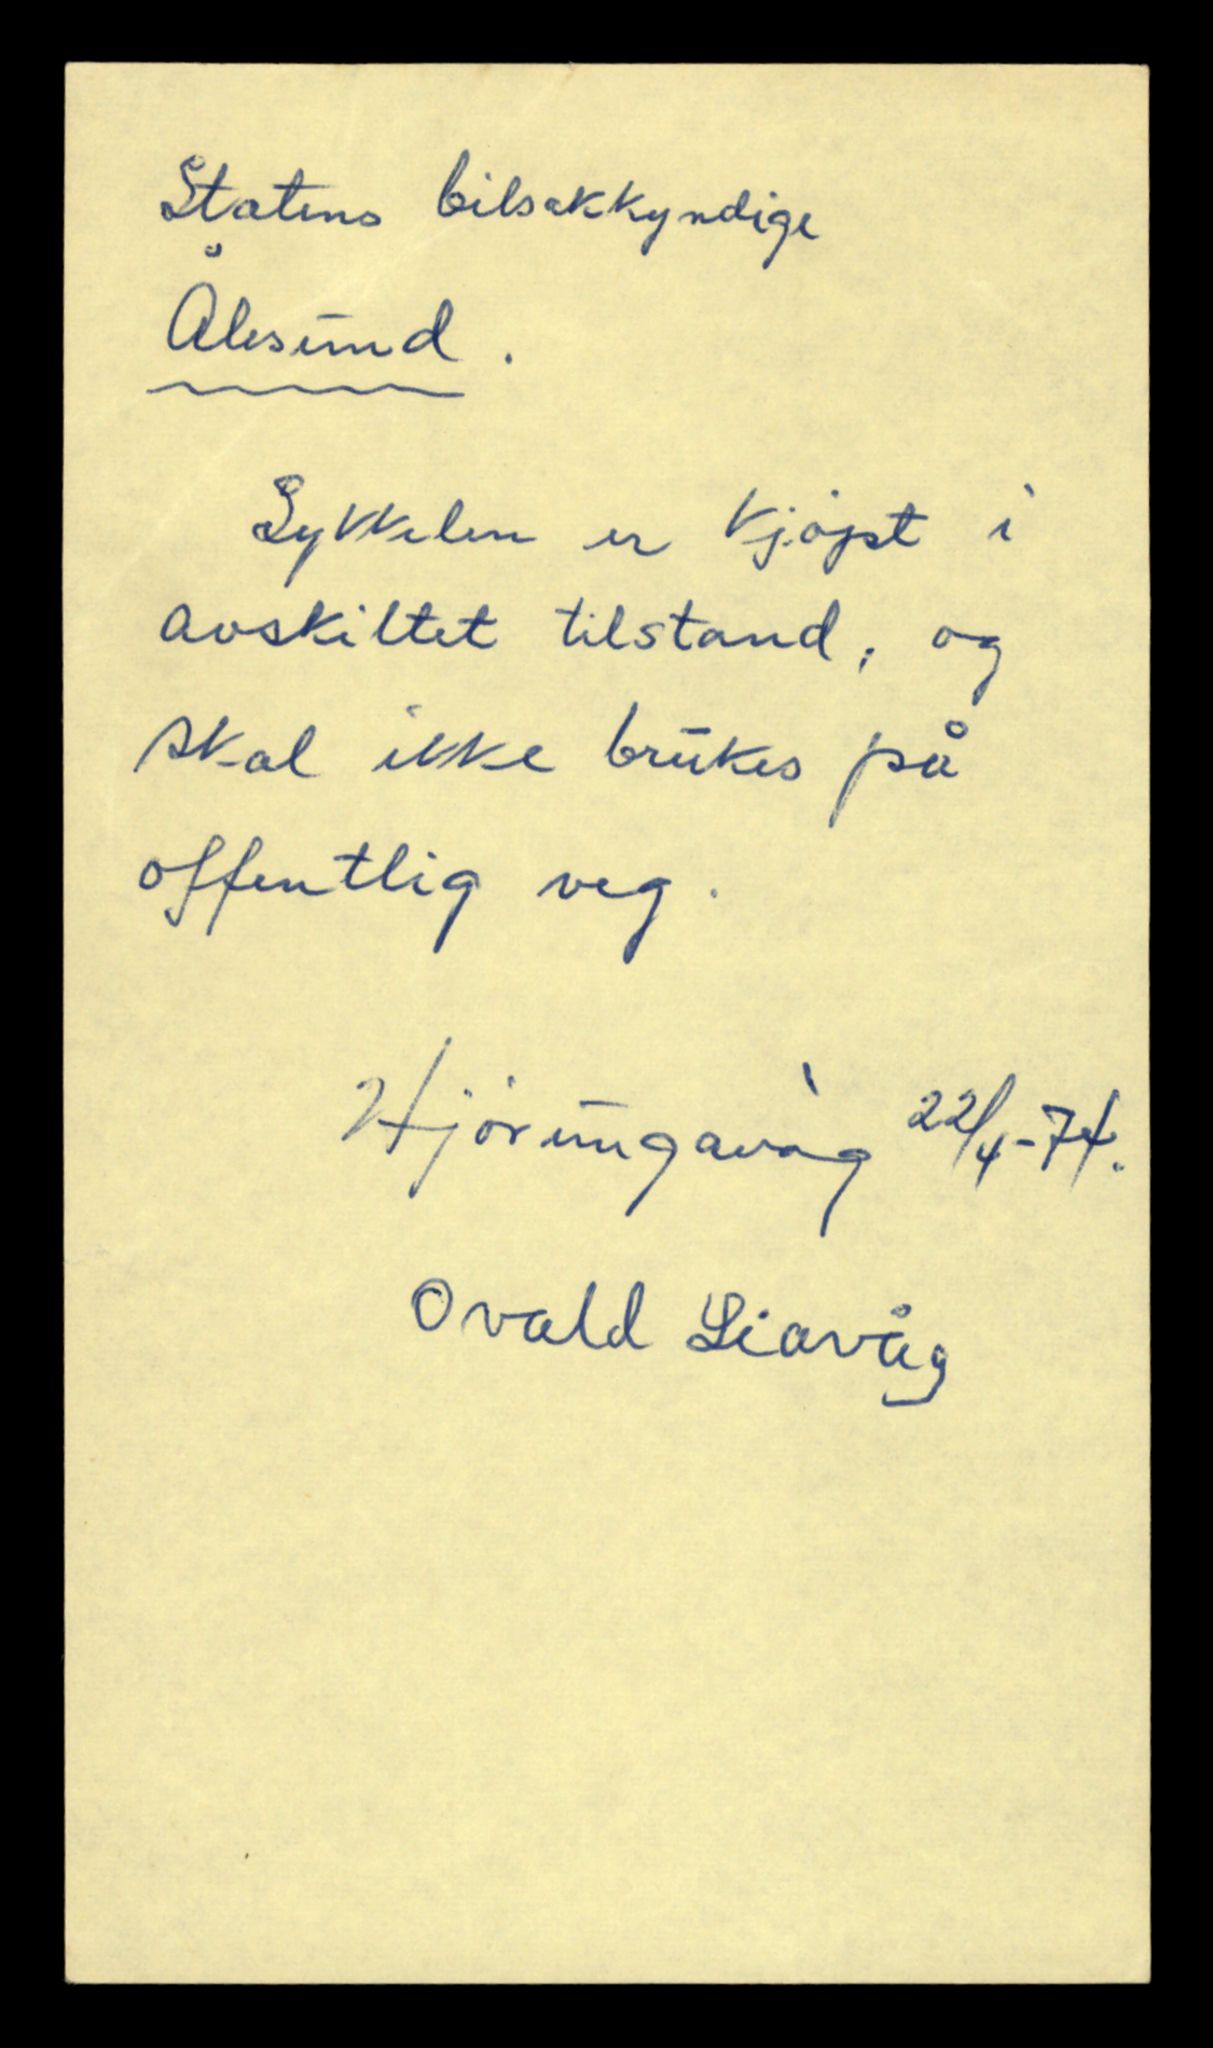 Statens bilsakkyndige
Ålesund.
Sykkelen er kjöpt i
avskiltet tilstand, og
skal ikke brukes på
offentlig veg.
Hjörungavåg 22/4-74.
Ovald Liavåg